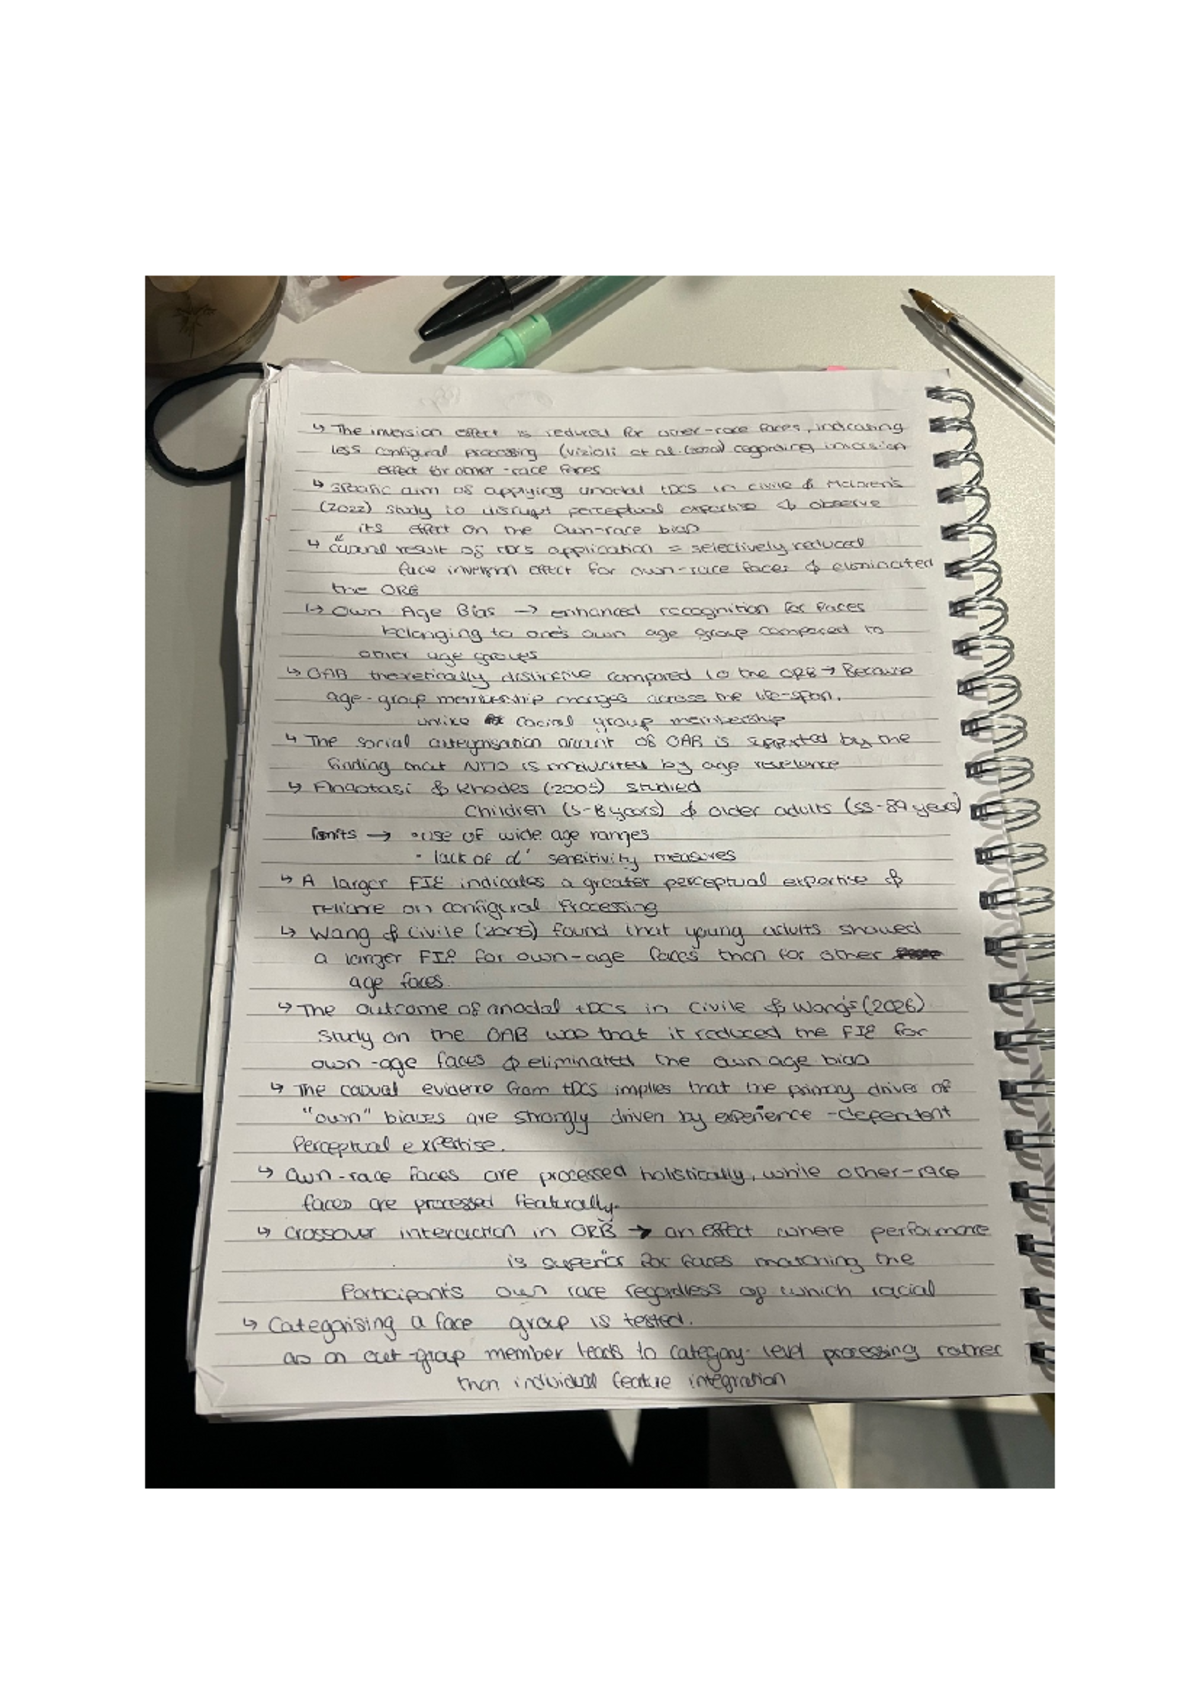 ↳ The inversion effect is reduced for other-race faces, indicating
less configural processing (Vizioli et al. (2010) regarding inversion
effect for other-race faces
↳ Specific aim of applying anodal tDCS in Civile & McLaren's
(2022) study is disrupt perceptual expertise & observe
its effect on the Own-race bias
↳ Causal result of tDCS application = selectively reduced
face inversion effect for own-race faces & eliminated
the ORB
↳ Own Age Bias → enhanced recognition for faces
belonging to one's own age group compared to
other age groups
↳ OAB theoretically distinctive compared to the ORB → Because
age-group membership changes across the life-span.
unlike racial group membership
↳ The social categorisation account of OAB is supported by the
finding that N170 is modulated by age relevance
↳ Anastasi & Rhodes (2005) studied
Children (5-8 years) & older adults (55-89 years)
limits → • use of wide age ranges
• lack of d' sensitivity measures
↳ A larger FIE indicates a greater perceptual expertise &
reliance on configural processing
↳ Wang & Civile (2026) found that young adults showed
a larger FIE for own-age faces than for other
age faces
↳ The outcome of anodal tDCS in Civile & Wang's (2026)
study on the OAB was that it reduced the FIE for
own-age faces & eliminated the own age bias
↳ The casual evidence from tDCS implies that the primary driver of
"own" biases are strongly driven by experience-dependent
Perceptual expertise.
↳ Own-race faces are processed holistically, while other-race
faces are processed featurally.
↳ Crossover interaction in ORB → an effect where performance
is superior for faces matching the
Participants own race regardless of which racial
group is tested.
↳ Categorising a face
as an out-group member leads to category-level processing rather
than individual feature integration